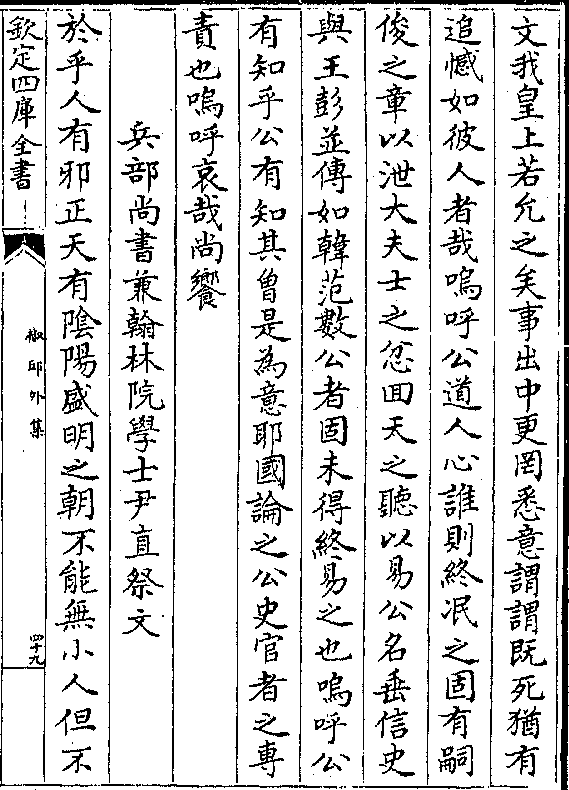 文我皇上若允之矣事出中更罔悉意謂謂既死猶有
追憾如彼人者哉嗚呼公道人心誰則終冺之固有嗣
俊之章以泄大夫士之忿囬天之聽以易公名垂信史
與王彭並傳如韓范數公者固未得終易之也嗚呼公
有知乎公有知其曾是為意耶國論之公史官者之專
責也嗚呼哀哉尚饗
兵部尚書兼翰林院學士尹直祭文
於乎人有邪正天有陰陽盛明之朝不能無小人但不
欽定四庫全書
椒邱外集
四十九